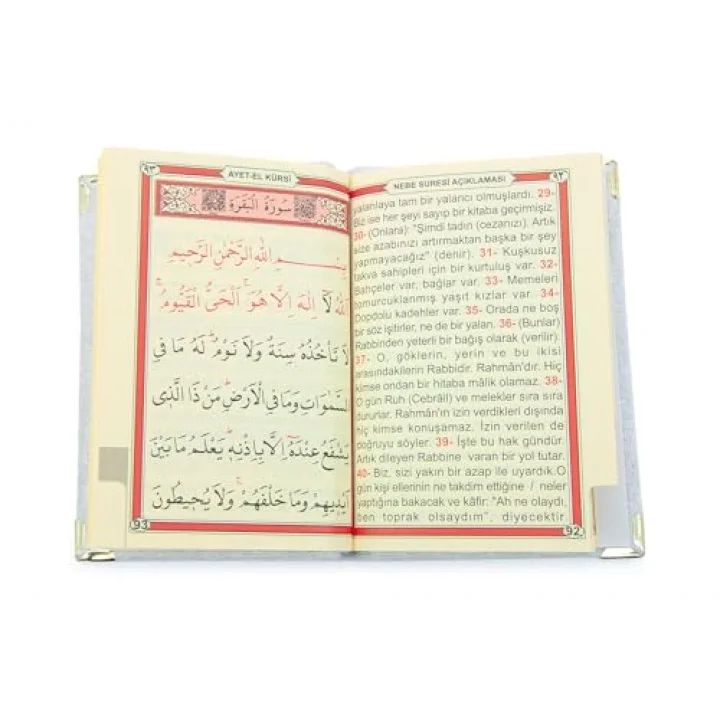 NEBE SURESİ AÇIKLAMASI
٩٢
yalanlaya tam bir yalancı olmuşlardı. 29-
Biz ise her şeyi sayıp bir kitaba geçirmişiz.
30- (Onlara): "Şimdi tadın (cezanızı). Artık
size azabınızı artırmaktan başka bir şey
yapmayacağız" (denir). 31- Kuşkusuz
takva sahipleri için bir kurtuluş var. 32-
Bahçeler var, bağlar var. 33- Memeleri
tomurcuklanmış yaşıt kızlar var. 34-
Dopdolu kadehler var. 35- Orada ne boş
bir söz işitirler, ne de bir yalan. 36- (Bunlar)
Rabbinden yeterli bir bağış olarak (verilir).
37- O, göklerin, yerin ve bu ikisi
arasındakilerin Rabbidir. Rahmân'dır. Hiç
kimse ondan bir hitaba mâlik olamaz. 38-
O gün Ruh (Cebrâil) ve melekler sıra sıra
dururlar. Rahmân'ın izin verdikleri dışında
hiç kimse konuşamaz. İzin verilen de
doğruyu söyler. 39- İşte bu hak gündür.
Artık dileyen Rabbine varan bir yol tutar.
40- Biz, sizi yakın bir azap ile uyardık.O
gün kişi ellerinin ne takdim ettiğine / neler
yaptığına bakacak ve kâfir: "Ah ne olaydı,
ben toprak olsaydım", diyecektir
92
٩٣
AYET-EL KÜRSİ
سُورَةُ الْبَقَرَةِ
بِسْمِ اللهِ الرَّحْمٰنِ الرَّحِيمِ
اَللهُ لَا اِلٰهَ اِلَّا هُوَۚ اَلْحَىُّ الْقَيُّومُۚ
لَا تَأْخُذُهُ سِنَةٌ وَلَا نَوْمٌۜ لَهُ مَا فِى
السَّمٰوَاتِ وَمَا فِى الْاَرْضِۜ مَنْ ذَا الَّذٖى
يَشْفَعُ عِنْدَهُٓ اِلَّا بِاِذْنِهٖۜ يَعْلَمُ مَا بَيْنَ
اَيْدٖيهِمْ وَمَا خَلْفَهُمْۚ وَلَا يُحٖيطُونَ
93